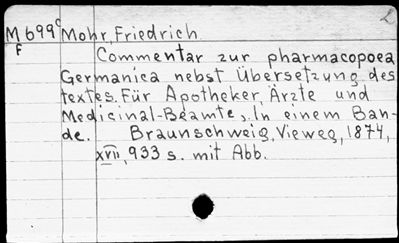 M699c Mohr, Friedrich
F
Commentar zur pharmacopoea
Germanica nebst Übersetzung des
textes. Für Apotheker, Ärzte und
Medicinal-Beamte. In einem Ban-
de. Braunschweig, Vieweg, 1874,
xvii, 933 s. mit Abb.